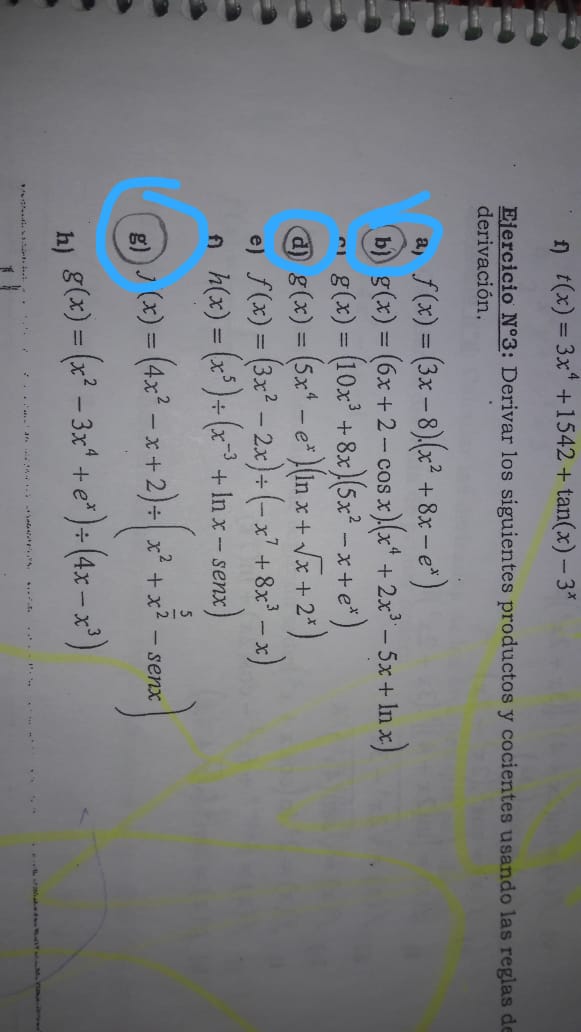 f) t(x) = 3x⁴ + 1542 + tan(x) − 3ˣ
Ejercicio Nº3: Derivar los siguientes productos y cocientes usando las reglas de
derivación.
a) f(x) = (3x − 8).(x² + 8x − eˣ)
b) g(x) = (6x + 2 − cos x).(x⁴ + 2x³ − 5x + ln x)
c) g(x) = (10x³ + 8x).(5x² − x + eˣ)
d) g(x) = (5x⁴ − eˣ).(ln x + √x + 2ˣ)
e) f(x) = (3x² − 2x) ÷ (− x⁷ + 8x³ − x)
f) h(x) = (x⁵) ÷ (x⁻³ + ln x − senx)
g) (x) = (4x² − x + 2) ÷ (x² + x^(5/2) − senx)
h) g(x) = (x² − 3x⁴ + eˣ) ÷ (4x − x³)